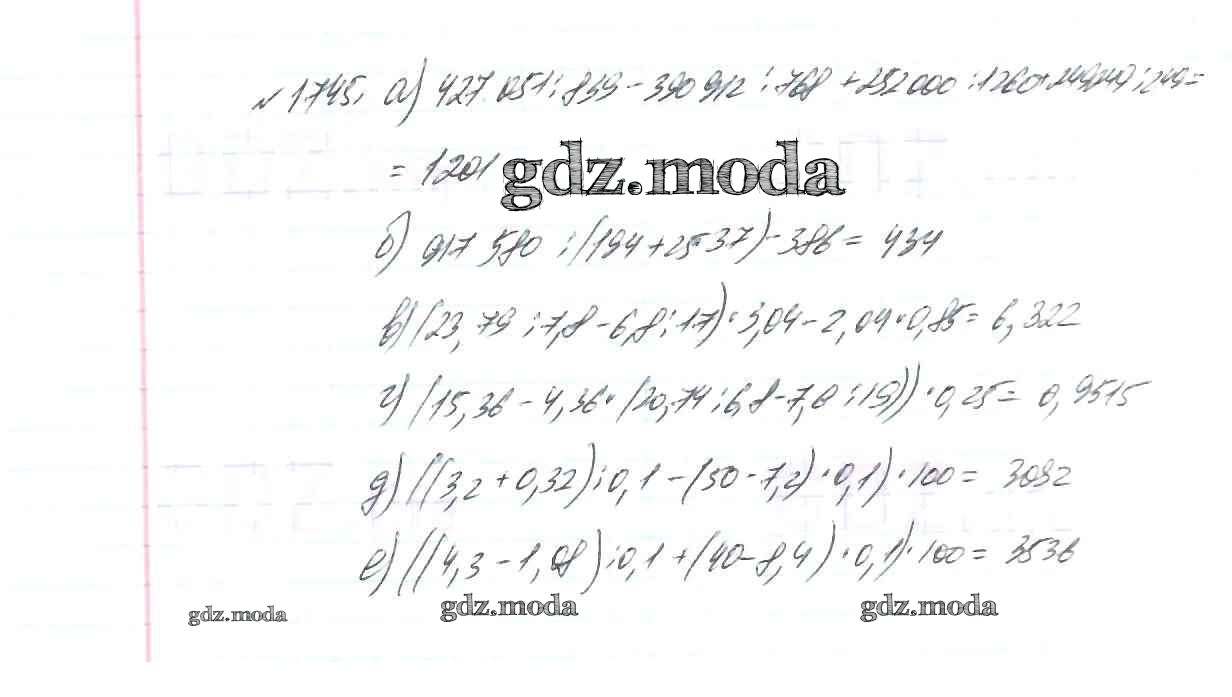 № 1745. а) 427 051 : 859 - 390 912 : 768 + 252 000 : 1260 + 249 249 : 249 =
= 1201
gdz.moda
б) 917 580 : (194 + 25 · 37) - 386 = 434
в) (23,79 : 7,8 - 6,8 : 17) · 3,04 - 2,04 · 0,85 = 6,322
г) (15,36 - 4,36 · (20,74 : 6,8 - 7,6 : 19)) · 0,25 = 0,9515
д) ((3,2 + 0,32) : 0,1 - (50 - 7,2) · 0,1) · 100 = 3092
е) ((4,3 - 1,08) : 0,1 + (40 - 8,4) · 0,1) · 100 = 3536
gdz.moda gdz.moda gdz.moda